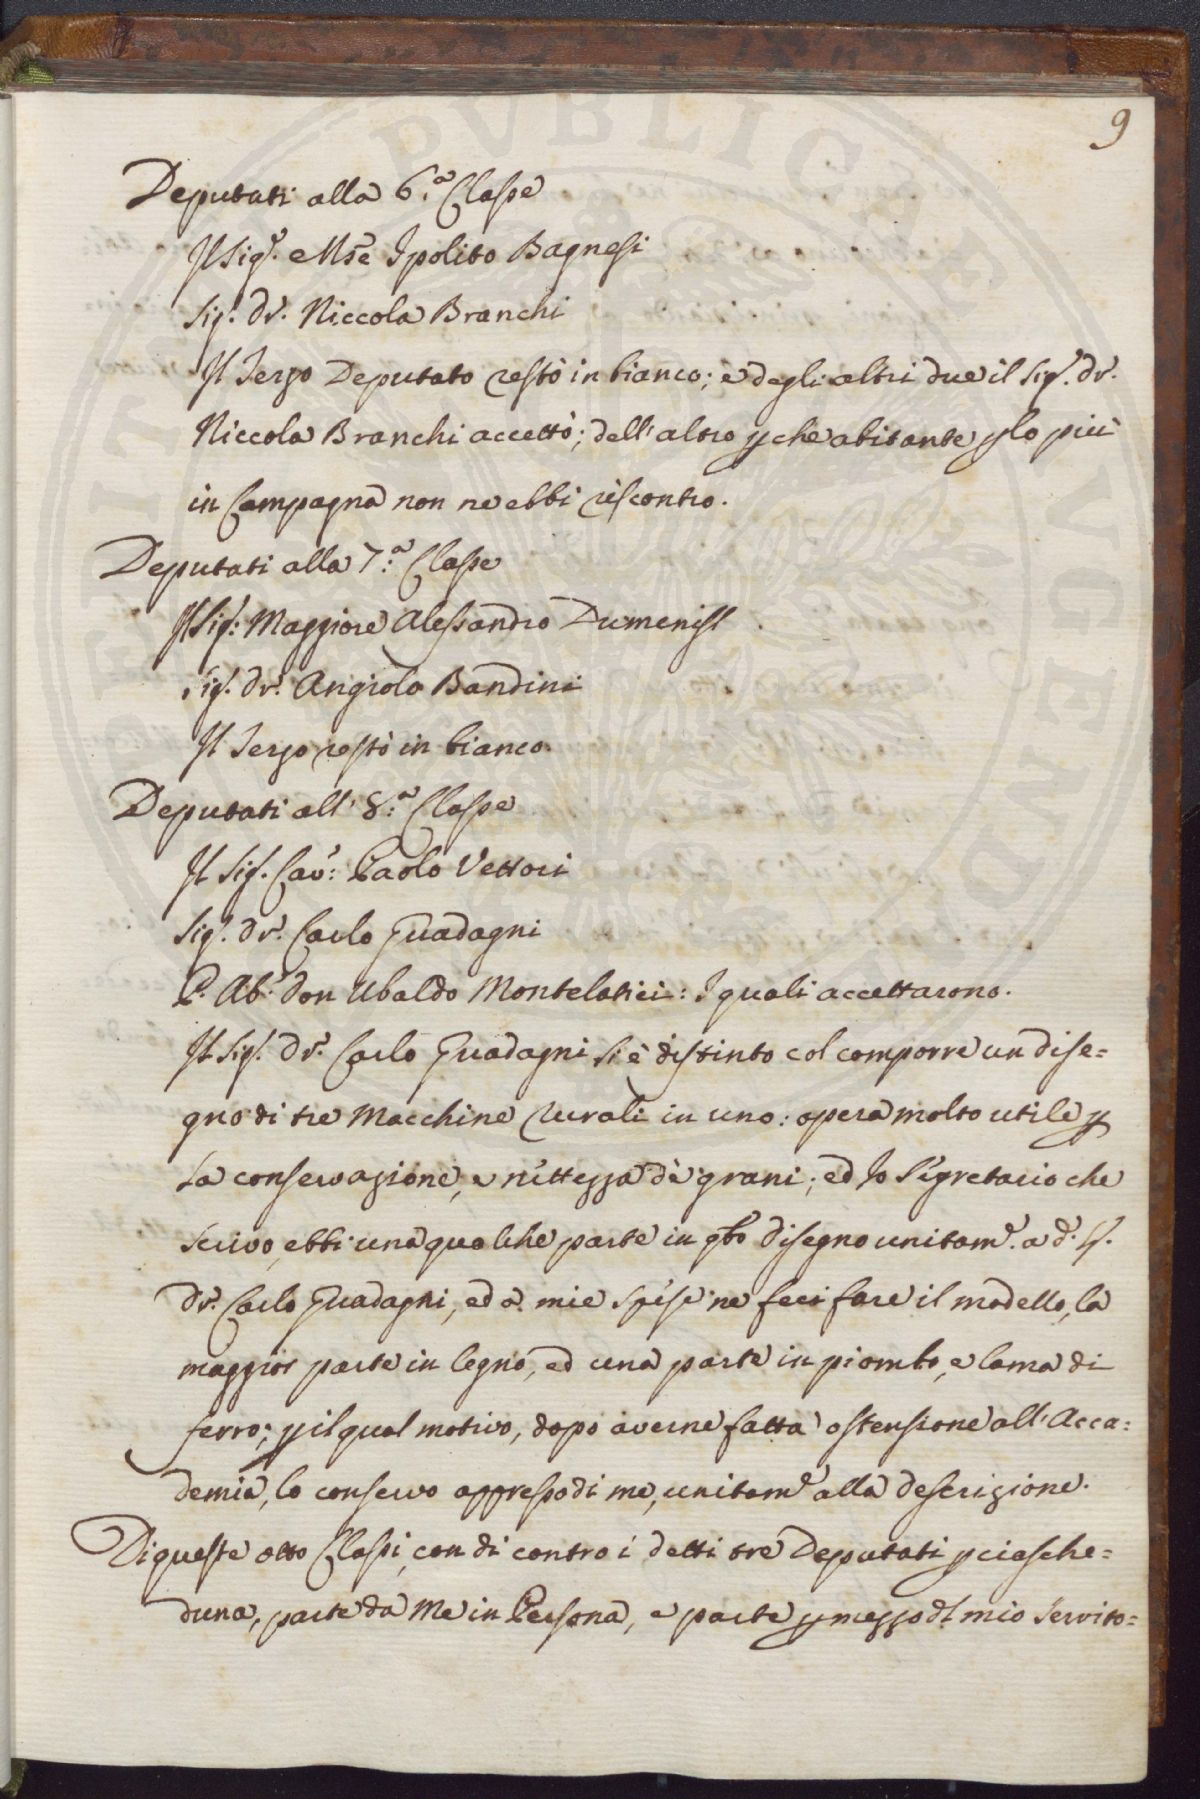 9
Deputati alla 6.ª Classe
Il Sig.r e Mse Ipolito Bagnesi
Sig.r Dr. Niccola Branchi
Il Terzo Deputato restò in bianco; e degli altri due il Sig.r Dr.
Niccola Branchi accettò; dell'altro p che abitante p lo più
in Campagna non ne ebbi riscontro.
Deputati alla 7.ª Classe
Il Sig.r: Maggiore Alessandro Dumenisl
Sig.r Dr. Angiolo Bandini
Il Terzo restò in bianco
Deputati all' 8.ª Classe
Il Sig.r Cav: Paolo Vettori
Sig.r Dr. Carlo Guadagni
P. Ab.e Don Ubaldo Montelatici: I quali accettarono.
Il Sig.r Dr. Carlo Guadagni si è distinto col comporre un dise=
gno di tre Macchine rurali in uno: opera molto utile p
la conservazione, e nettezza de' grani; ed Io Segretario che
scrivo, ebbi una qualche parte in qto disegno unitam.e a d.o S.
Dr. Carlo Guadagni, ed a mie spese ne feci fare il modello, la
maggior parte in legno, ed una parte in piombo, e lama di
ferro; p il qual motivo, dopo averne fatta ostensione all'Acca=
demia, lo conservo appresso di me, unitam.e alla descrizione.
Di queste otto Classi, con di contro i detti tre Deputati p ciasche=
duna, parte da Me in Persona, e parte p mezzo dl mio Servito=
PVBLICAE